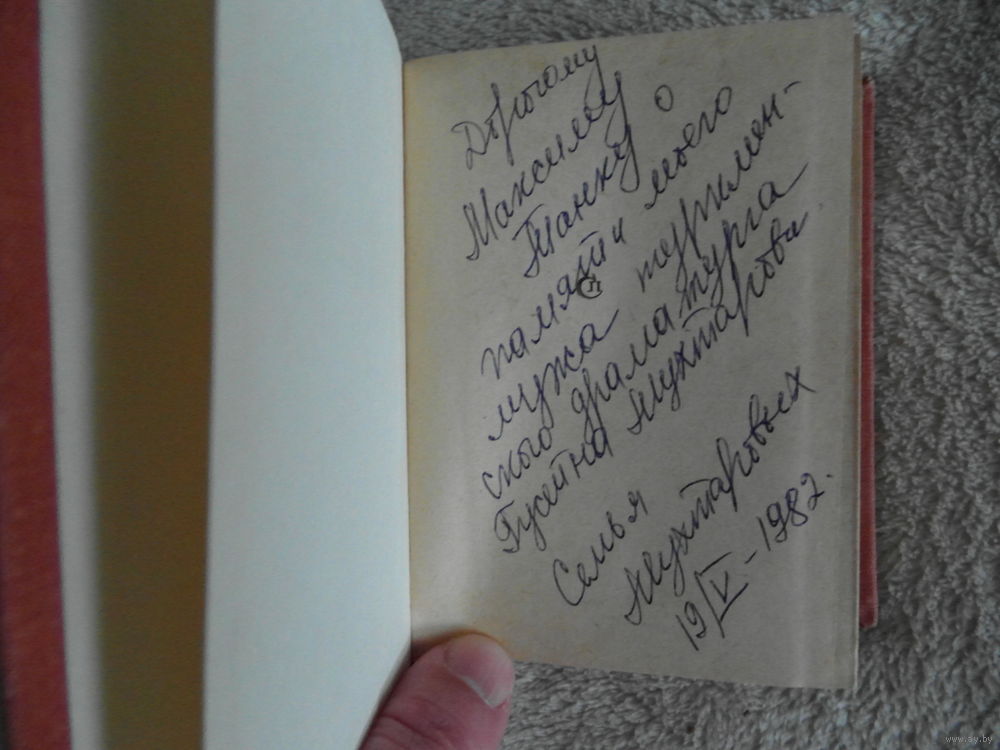 Дорогому
Максиму
Танку о
памяти моего
мужа туркмен-
ского драматурга
Гусейна Мухтарова
Семья
Мухтаровых
19/V-1982.
www.ay.by